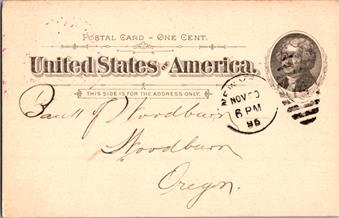 POSTAL CARD - ONE CENT.
United States of America.
THIS SIDE IS FOR THE ADDRESS ONLY.
NOV
6 PM
95
Bank of Woodburn
Woodburn
Oregon.